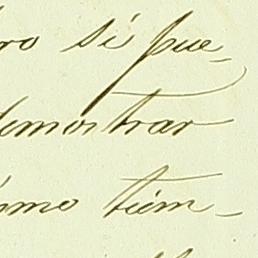 ro si pue-
demostrar
smo tiem-